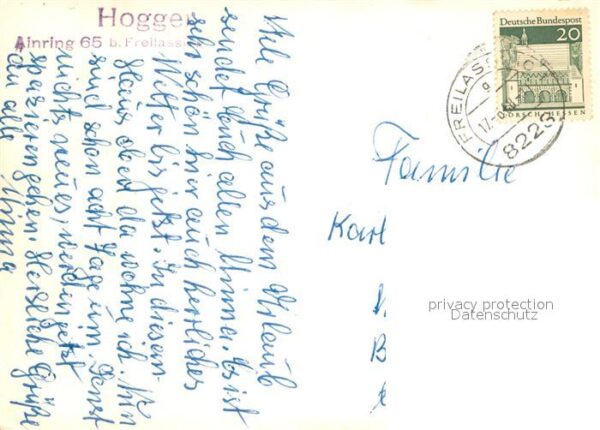 Hogger
Ainring 65 b. Freilass
Viele Grüße aus dem Urlaub
sendet Euch allen Minna. Es ist
sehr schön hier auch herrliches
Wetter bis jetzt. In diesem
Haus oben da wohne ich. Nun
sind schon acht Tage um. Sonst
nichts neues, werden jetzt
spazieren gehen. Herzliche Grüße
an alle Minna
Deutsche Bundespost
20
LORSCH HESSEN
FREILASSING
8228
Familie
Karl
privacy protection
Datenschutz